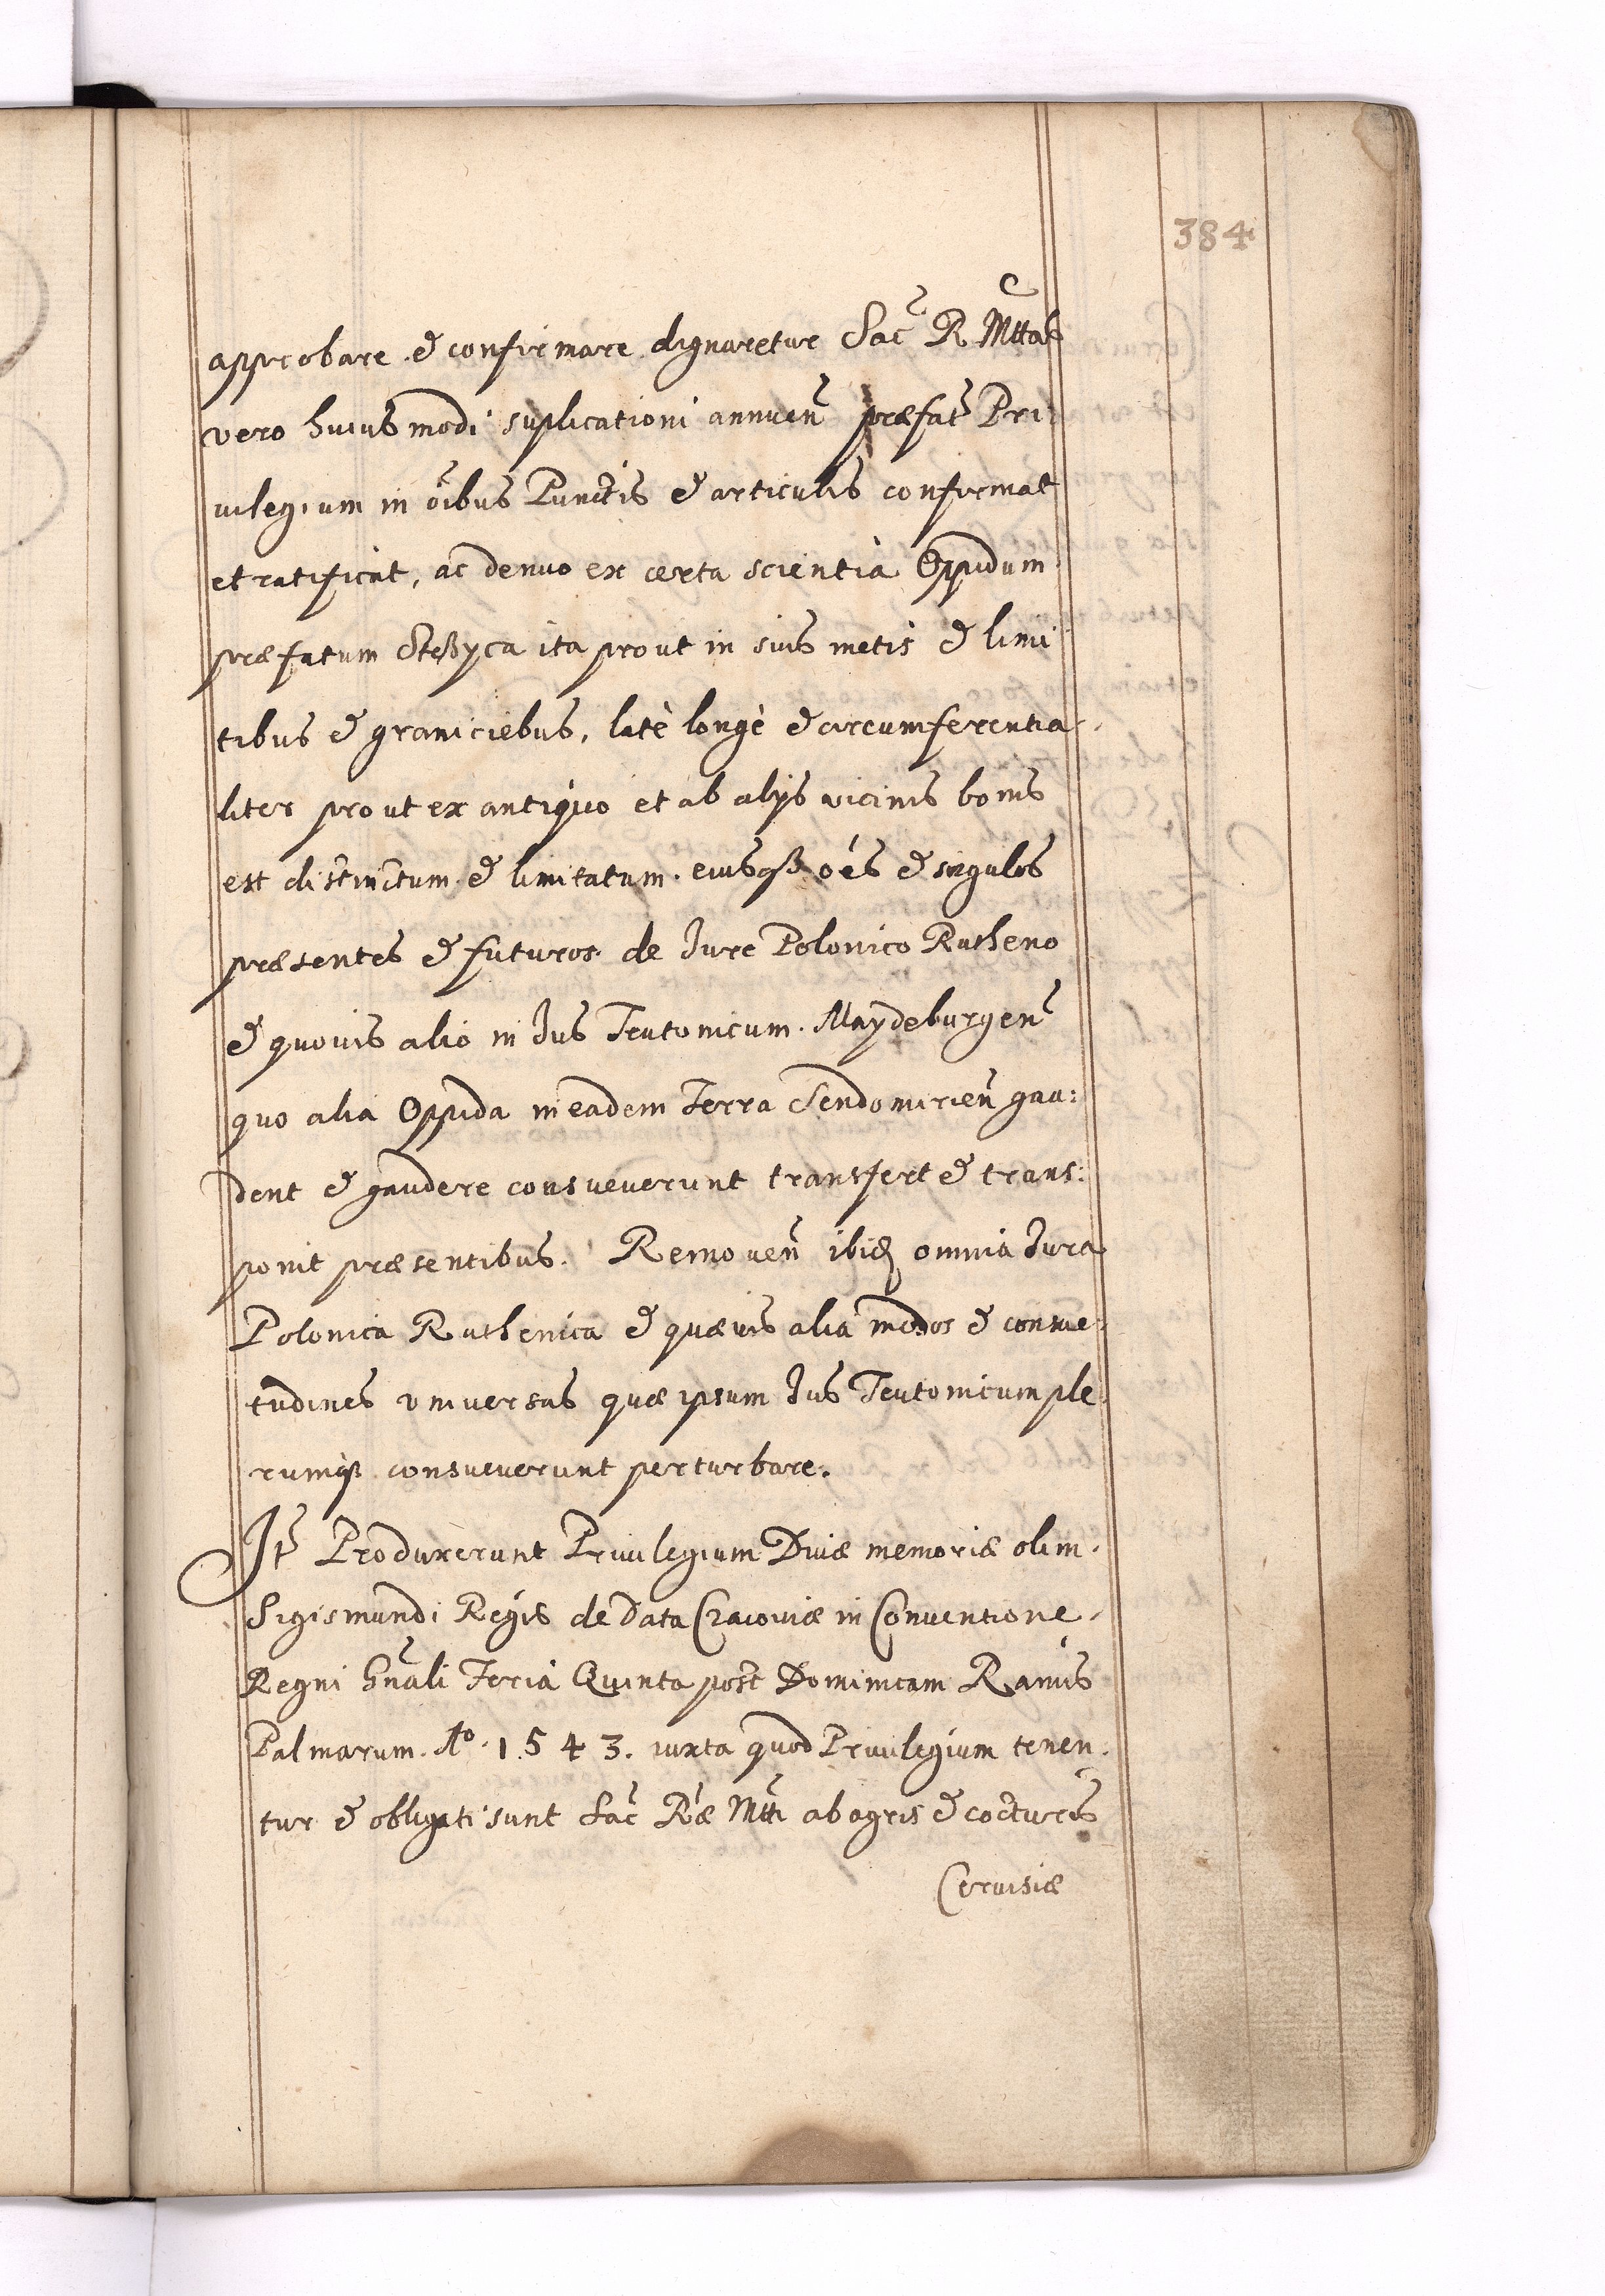 384
approbare & confirmare dignaretur Sac R Mttas
vero huiusmodi suplicationi annuen præfat Pri
uilegium in oibus Punctis & articulis confirmat
et ratificat, ac denuo ex certa scientia Oppidum
præfatum Steßyca ita prout in suis metis & limi
tibus & graniciebus, latè longè & circumferentia
liter prout ex antiquo et ab alijs vicinis bonis
est distinctum & limitatum. eiusqß oés & singulos
præsentes & futuros de Jure Polonico Rutheno
& quouis alio in Jus Teutonicum. Maydeburgen
quo alia Oppida in eadem Terra Sendomirien gau:
dent & gaudere consueuerunt transfert & trans:
ponit præsentibus. Remouen ibid omnia Jura
Polonica Ruthenica & quæuis alia modos & consue:
tudines vniuersas quæ ipsum Jus Teutonicum ple
rumqß consueuerunt perturbare.
It Produxerunt Priuilegium Diuæ memoriæ olim.
Sigismundi Regis de Data Cracouiæ in Conuentione
Regni Gnali Feria Quinta post Dominicam Ramis
Palmarum. Aº. 1.5 4 3. iuxta quod Priuilegium tenen.
tur & obligati sunt Sac Ræ Mtti ab agris & cocturis
Ceruisiæ